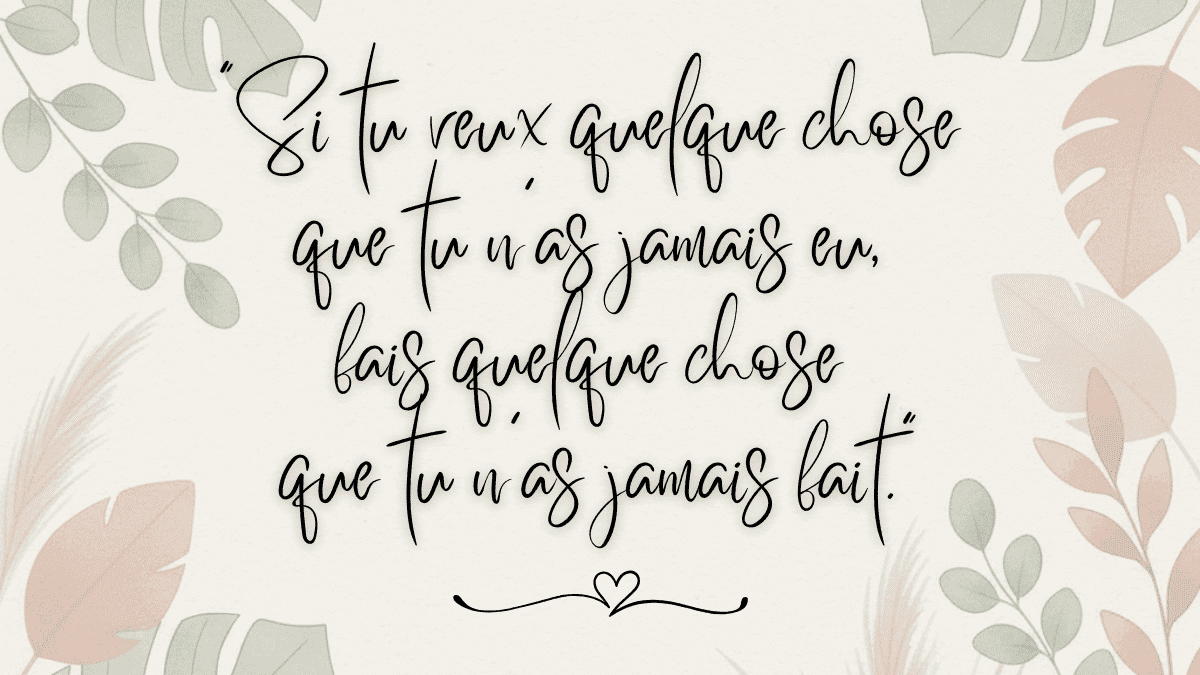 "Si tu veux quelque chose
que tu n'as jamais eu,
fais quelque chose
que tu n'as jamais fait."